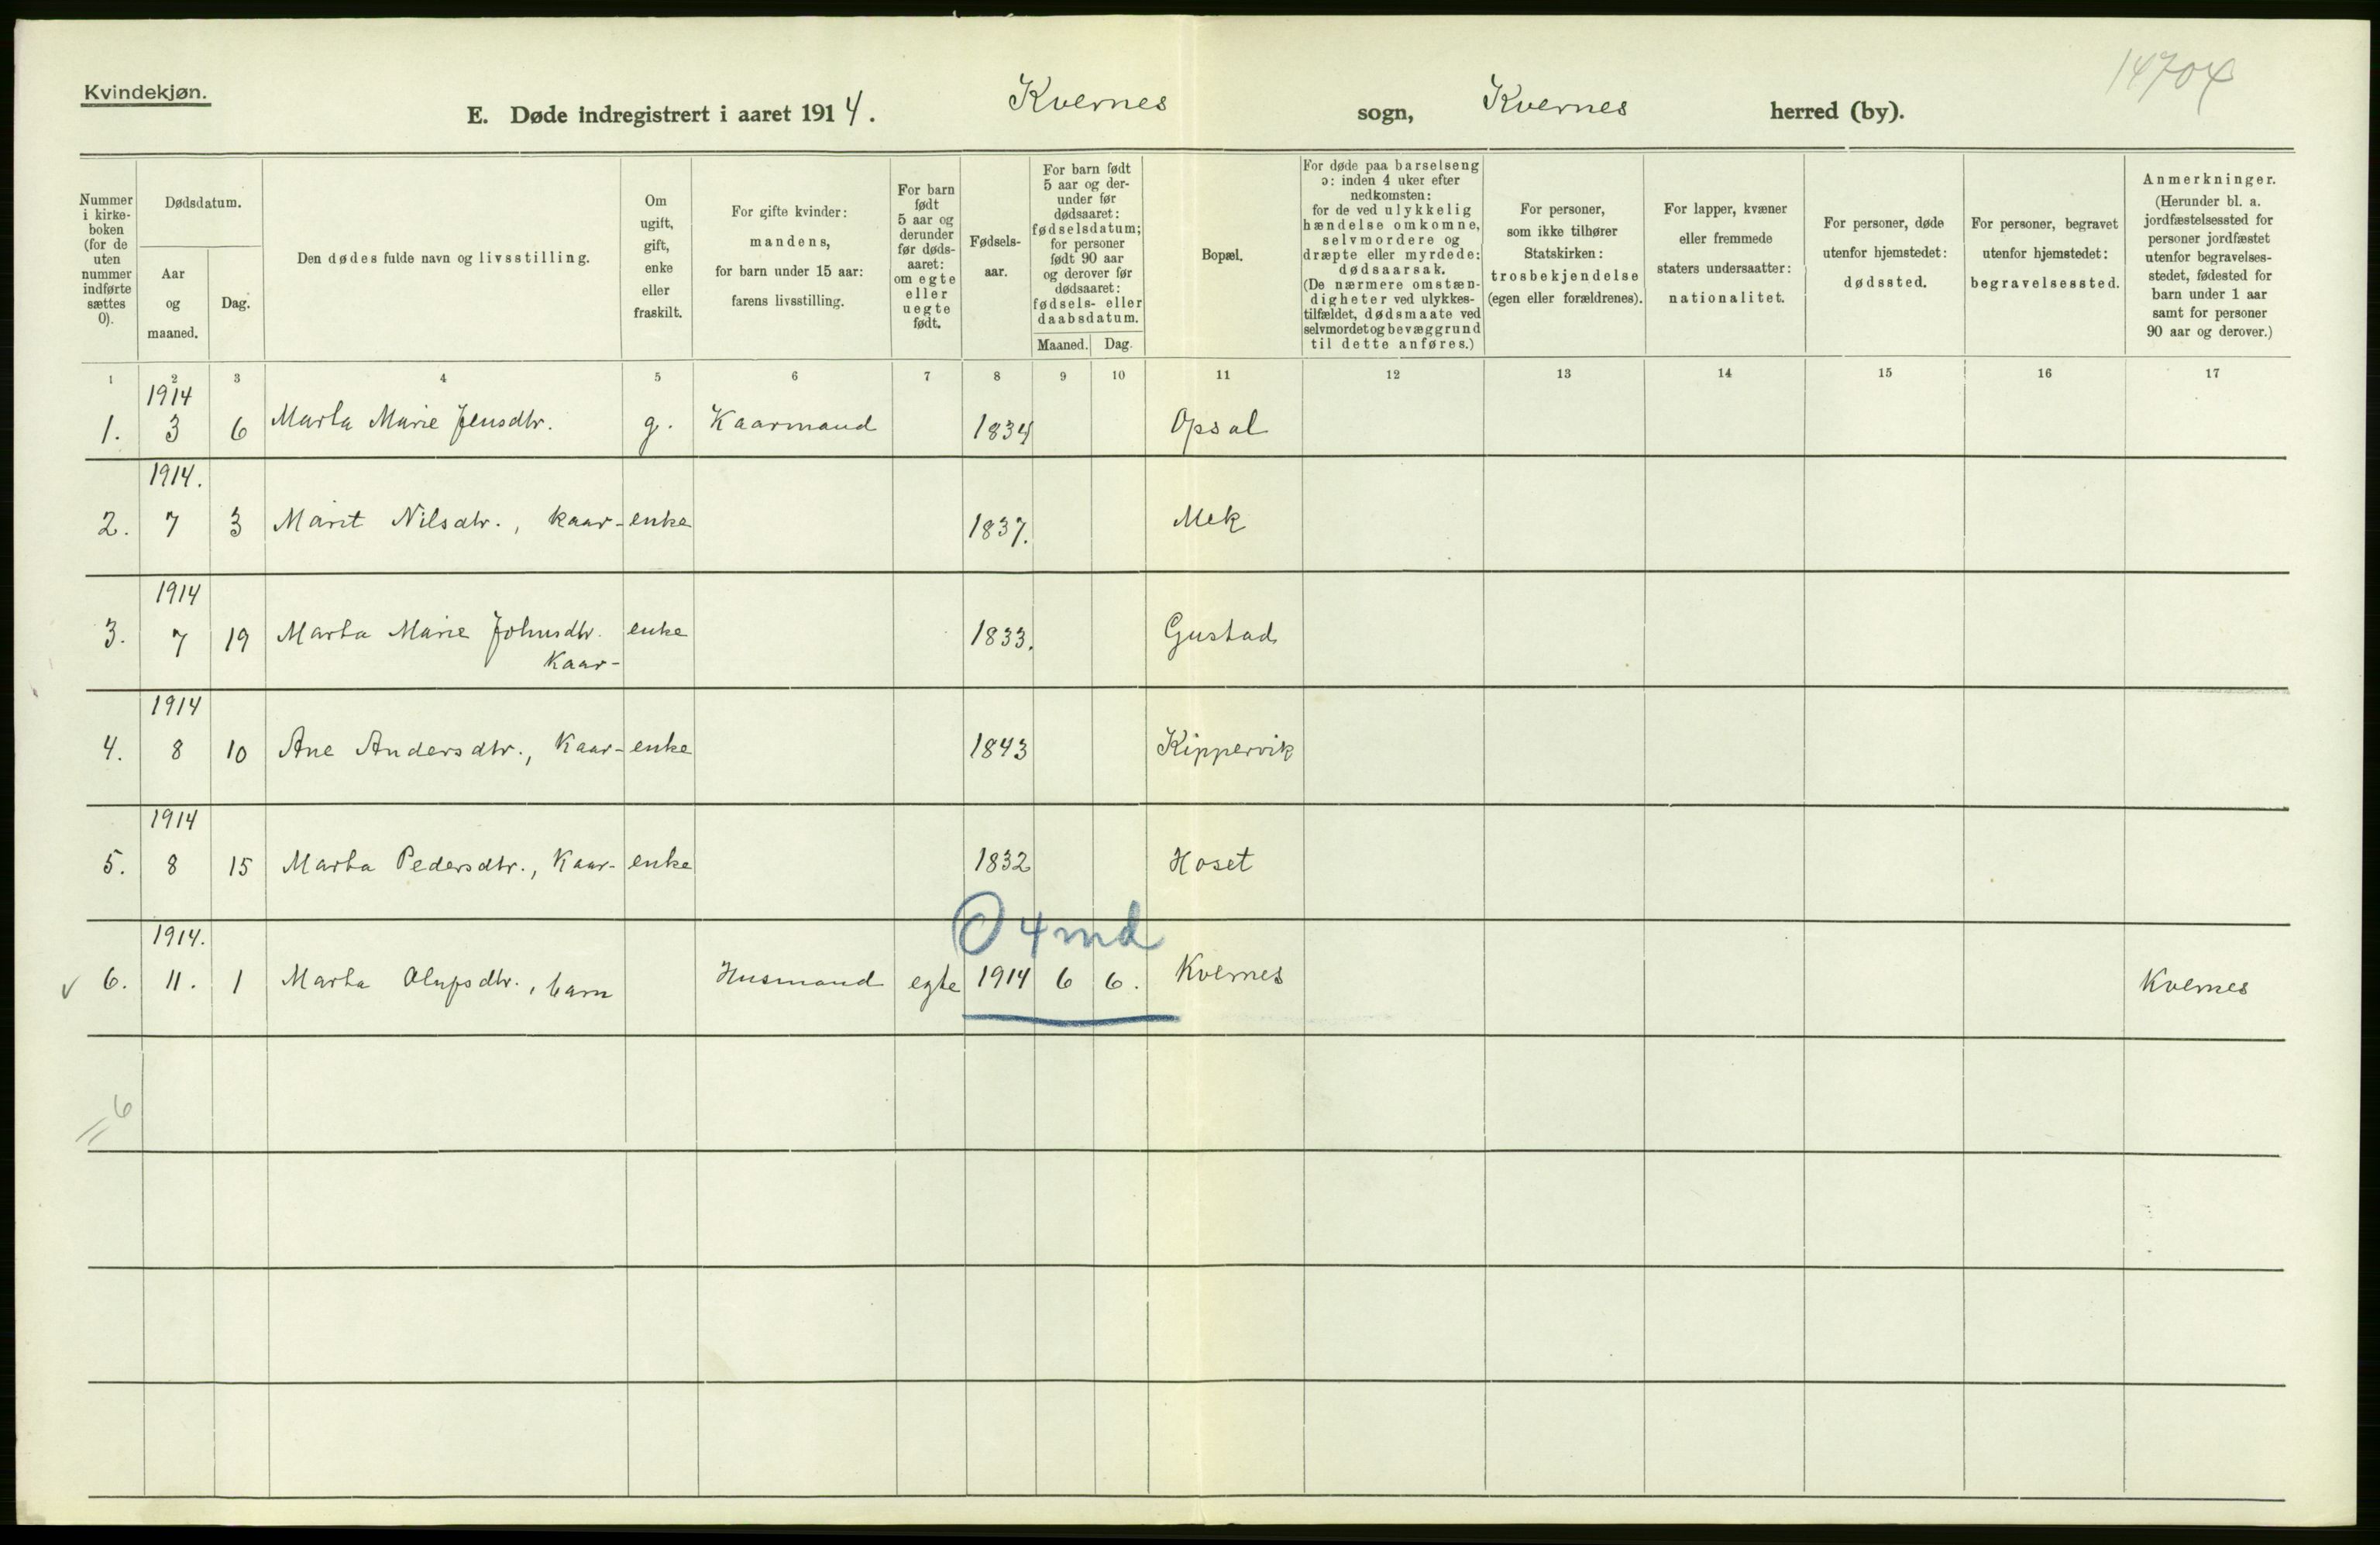 Kvindekjøn.
14704
E. Døde indregistrert i aaret 1914. Kvernes sogn, Kvernes herred (by).
Nummer
i kirke-
boken
(for de
uten
nummer
indførte
sættes
0).
Dødsdatum.
Aar
og
maaned.
Dag.
Den dødes fulde navn og livsstilling.
Om
ugift,
gift,
enke
eller
fraskilt.
For gifte kvinder:
mandens,
for barn under 15 aar:
farens livsstilling.
For barn
født
5 aar og
derunder
før døds-
aaret:
om egte
eller
uegte
født.
Fødsels-
aar.
For barn født
5 aar og der-
under før
dødsaaret:
fødselsdatum;
for personer
født 90 aar
og derover før
dødsaaret:
fødsels- eller
daabsdatum.
Maaned. Dag.
Bopæl.
For døde paa barselseng
ɔ: inden 4 uker efter
nedkomsten:
for de ved ulykkelig
hændelse omkomne,
selvmordere og
dræpte eller myrdede:
dødsaarsak.
(De nærmere omstæn-
digheter ved ulykkes-
tilfældet, dødsmaate ved
selvmordet og bevæggrund
til dette anføres.)
For personer,
som ikke tilhører
Statskirken:
trosbekjendelse
(egen eller forældrenes).
For lapper, kvæner
eller fremmede
staters undersaatter:
nationalitet.
For personer, døde
utenfor hjemstedet:
dødssted.
For personer, begravet
utenfor hjemstedet:
begravelsessted.
Anmerkninger.
(Herunder bl. a.
jordfæstelsessted for
personer jordfæstet
utenfor begravelses-
stedet, fødested for
barn under 1 aar
samt for personer
90 aar og derover.)
1 2 3 4 5 6 7 8 9 10 11 12 13 14 15 16 17
1914
1. 3 6 Marta Marie Jensdtr. g. Kaarmand 1834 Opsal
1914.
2. 7 3 Marit Nilsdtr., kaar- enke 1837. Mek
1914
3. 7 19 Marta Marie Johnsdtr. enke 1833. Gustad
Kaar-
1914
4. 8 10 Ane Andersdtr., Kaar- enke 1843 Kippervik
1914
5. 8 15 Marta Pedersdtr., Kaar- enke 1832 Hoset
1914. 0 4 md
v 6. 11. 1 Marta Olufsdtr., barn Husmand egte 1914 6 6. Kvernes Kvernes
6